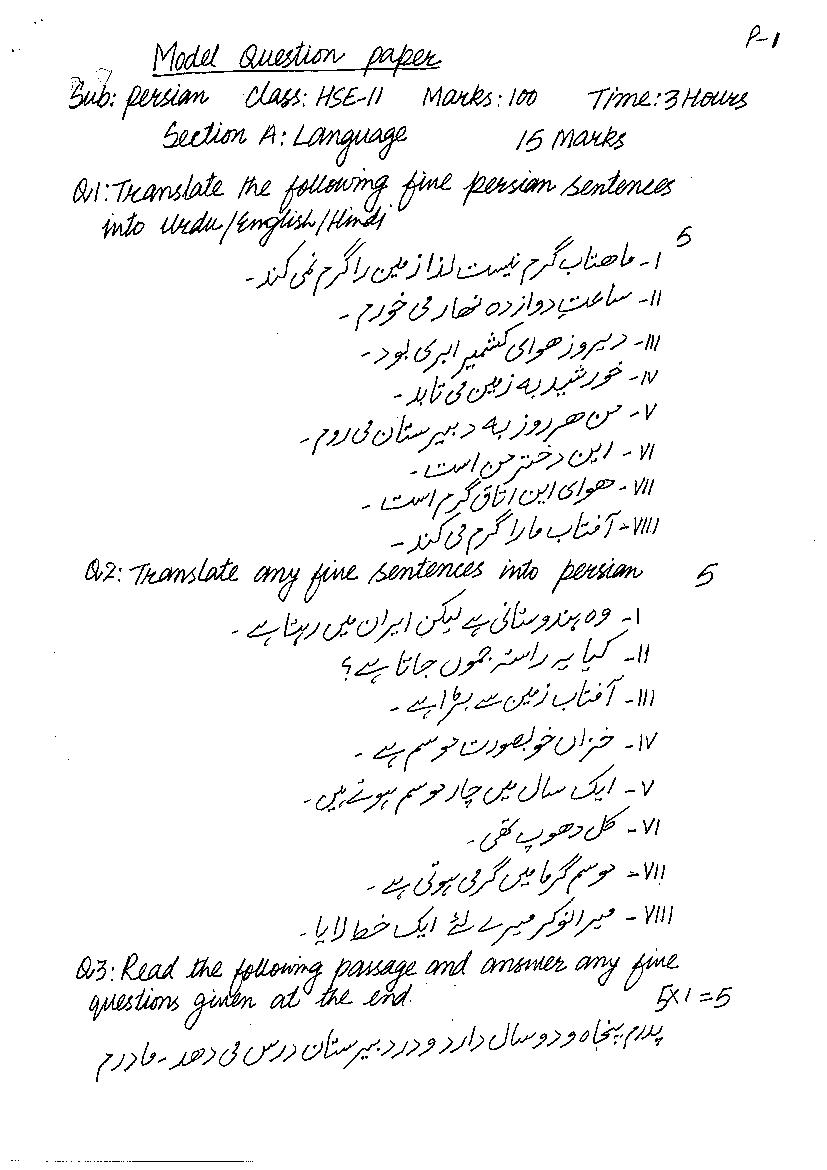 P-1
Model Question paper
Sub: persian Class: HSE-II Marks: 100 Time: 3 Hours
Section A: Language 15 Marks
Q1: Translate the following five persian sentences
into Urdu/English/Hindi
5
I- ماهتاب گرم نیست لذا زمین را گرم نمی کند-
II- ساعت دوازده نهار می خورم-
III- دیروز هوای کشمیر ابری بود-
IV- خورشید به زمین می تابد-
V- من هر روز به دبیرستان می روم-
VI- این دختر من است-
VII- هوای این اتاق گرم است-
VIII- آفتاب ما را گرم می کند-
Q2: Translate any five sentences into persian 5
I- وہ ہندوستانی ہے لیکن ایران میں رہتا ہے-
II- کیا یہ راستہ جموں جاتا ہے؟
III- آفتاب زمین سے بڑا ہے-
IV- خزاں خوبصورت موسم ہے-
V- ایک سال میں چار موسم ہوتے ہیں-
VI- کل دھوپ تھی-
VII- موسم گرما میں گرمی ہوتی ہے-
VIII- میرا نوکر میرے لئے ایک خط لایا-
Q3: Read the following passage and answer any five
questions given at the end.
5x1=5
پدرم پنجاه و دو سال دارد و در دبیرستان درس می دهد- مادرم